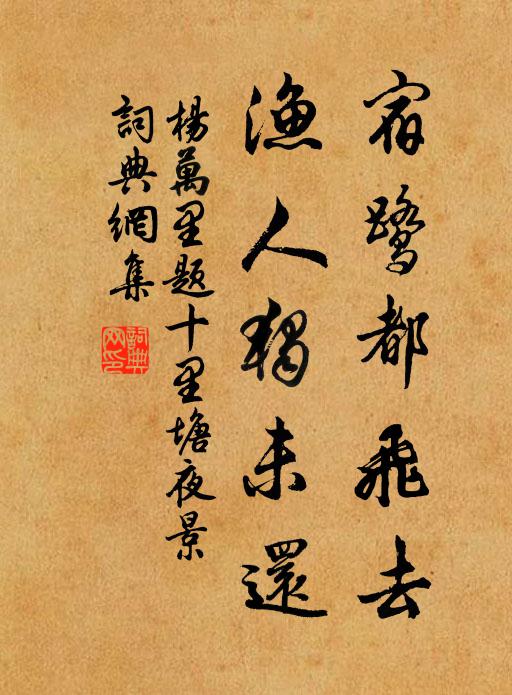 宿鷺都飛去
漁人獨未還
楊萬里題十里塘夜景
詞典網集
詞典网印